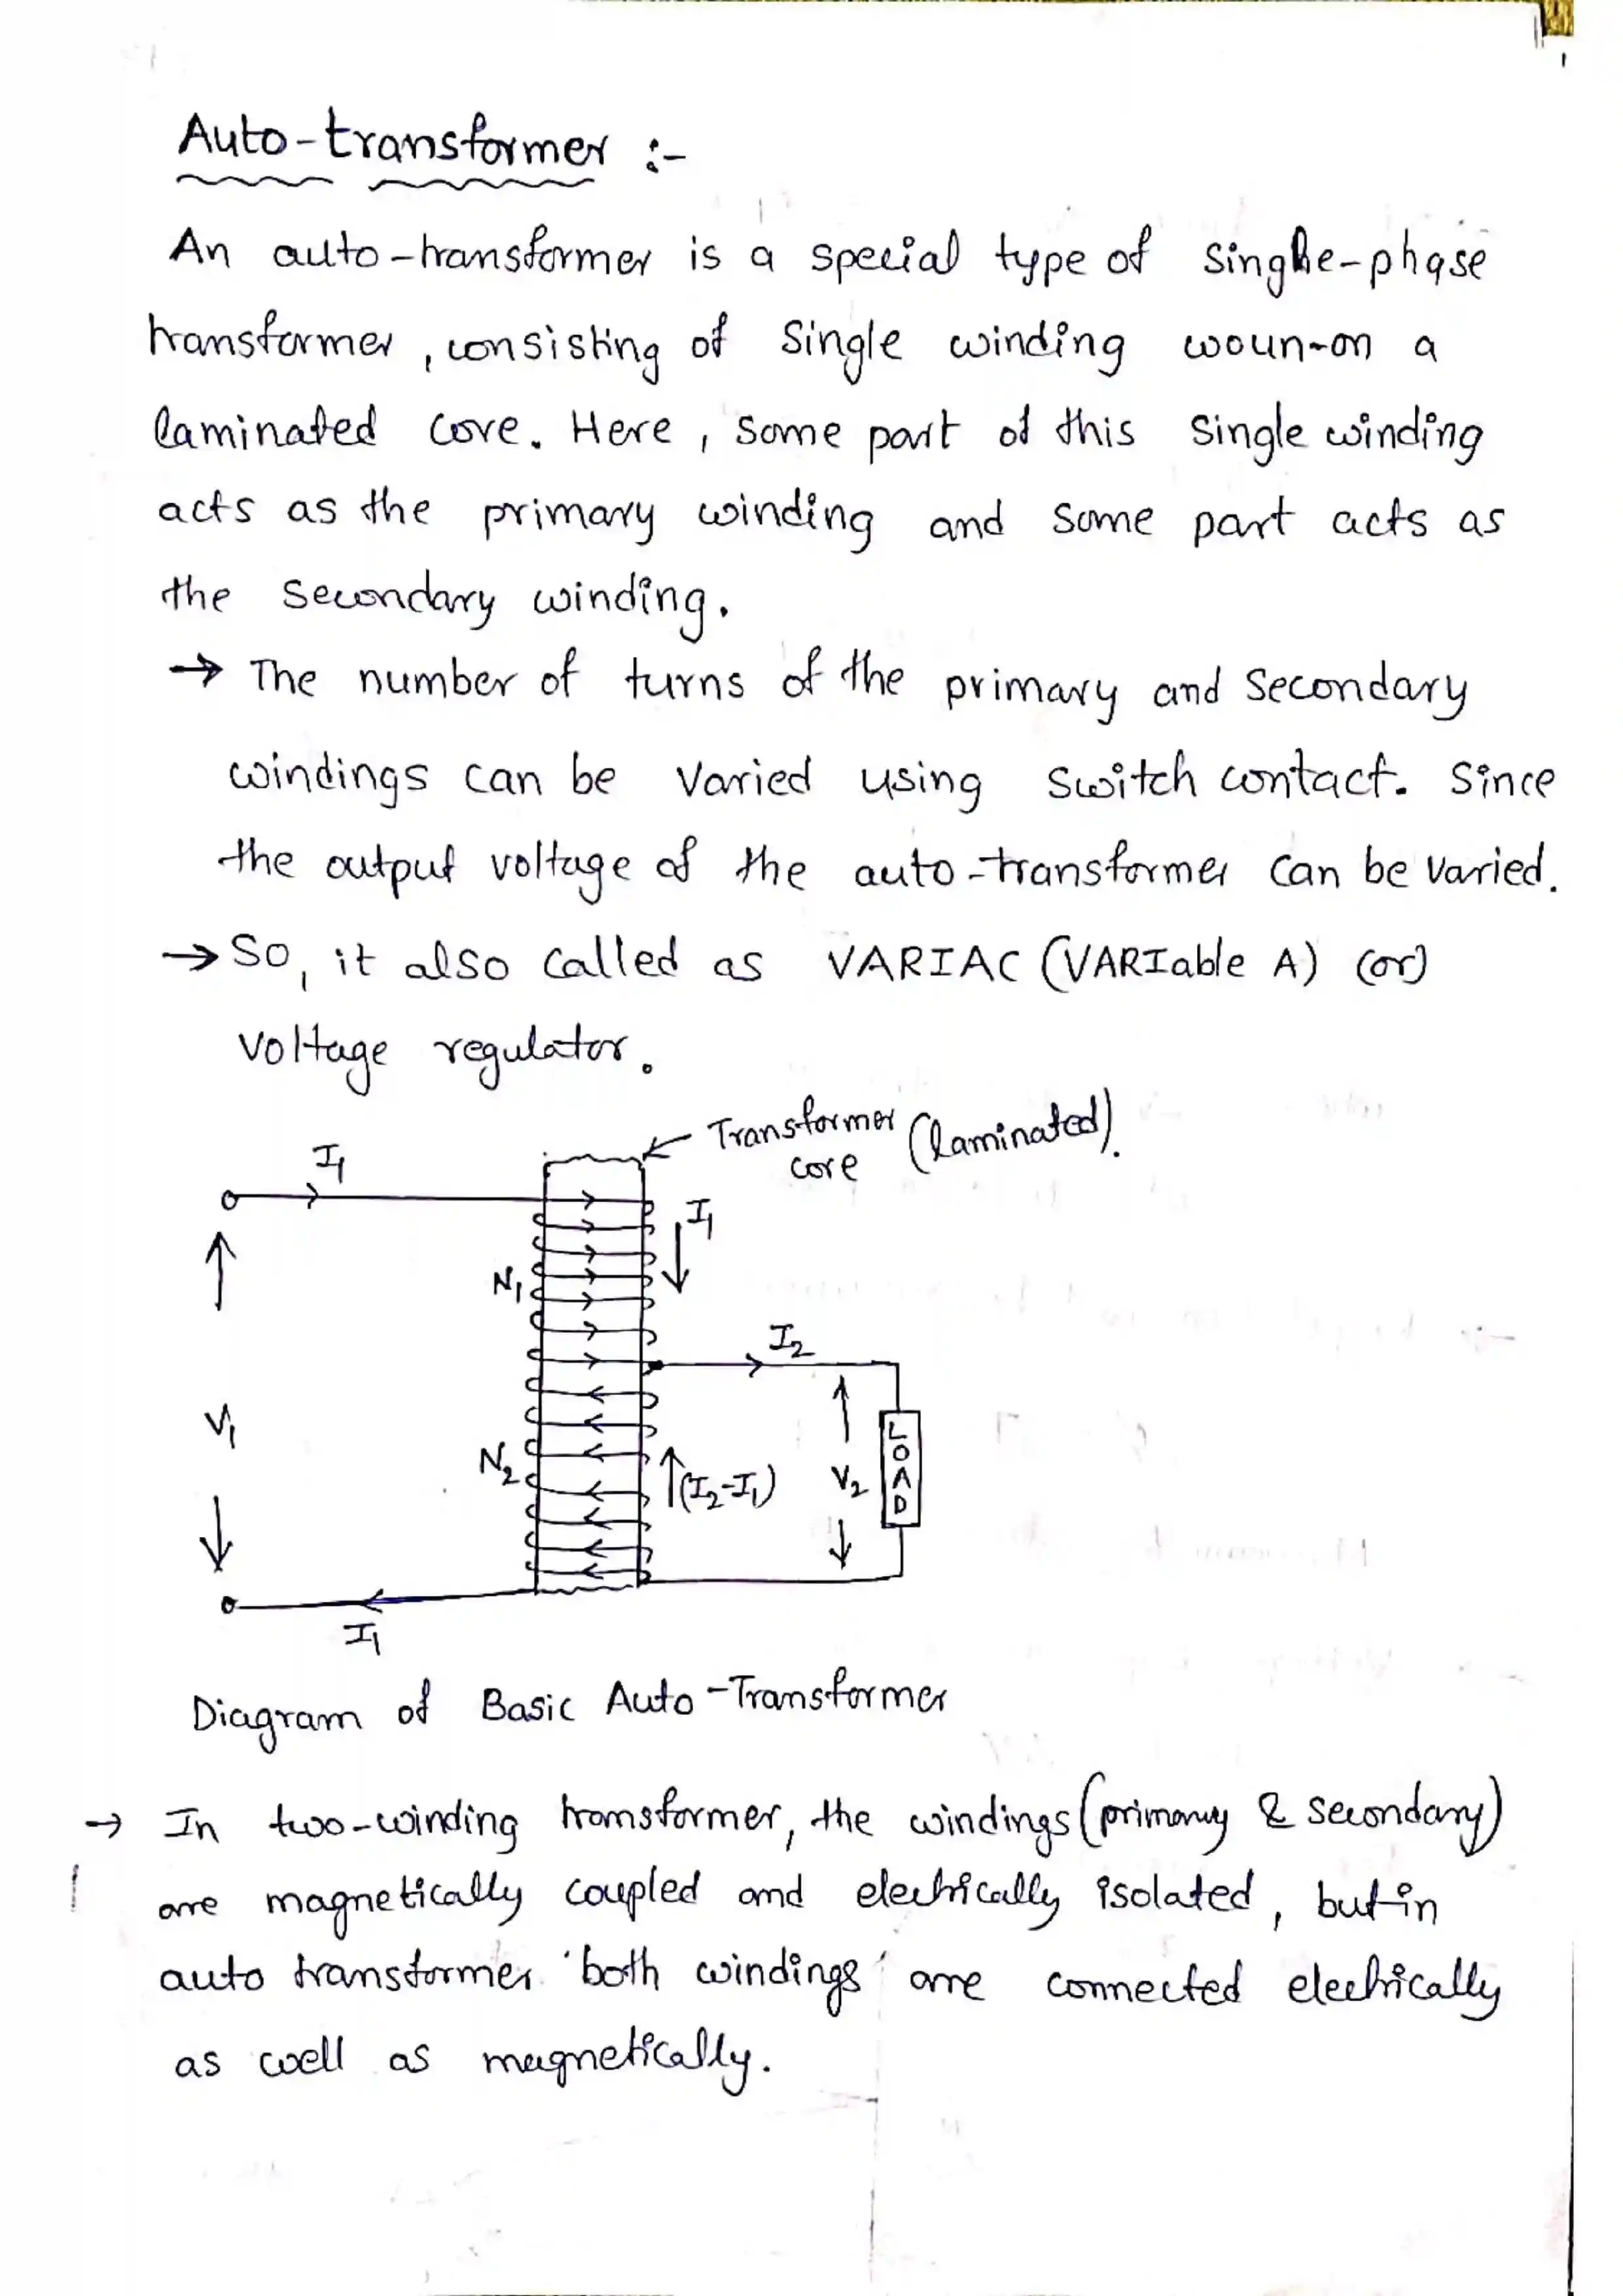 Auto-transformer :-
An auto-transformer is a special type of single-phase
transformer, consisting of single winding woun-on a
laminated core. Here, some part of this single winding
acts as the primary winding and some part acts as
the secondary winding.
→ The number of turns of the primary and secondary
windings can be varied using switch contact. Since
the output voltage of the auto-transformer can be varied.
→ So, it also called as VARIAC (VARIable A) (or)
voltage regulator.
Transformer (laminated).
core
I1
I1
N1
I2
V1
N2
(I2-I1)
V2
LOAD
I1
Diagram of Basic Auto-Transformer
→ In two-winding transformer, the windings (primary & secondary)
are magnetically coupled and electrically isolated, but in
auto transformer 'both windings' are connected electrically
as well as magnetically.